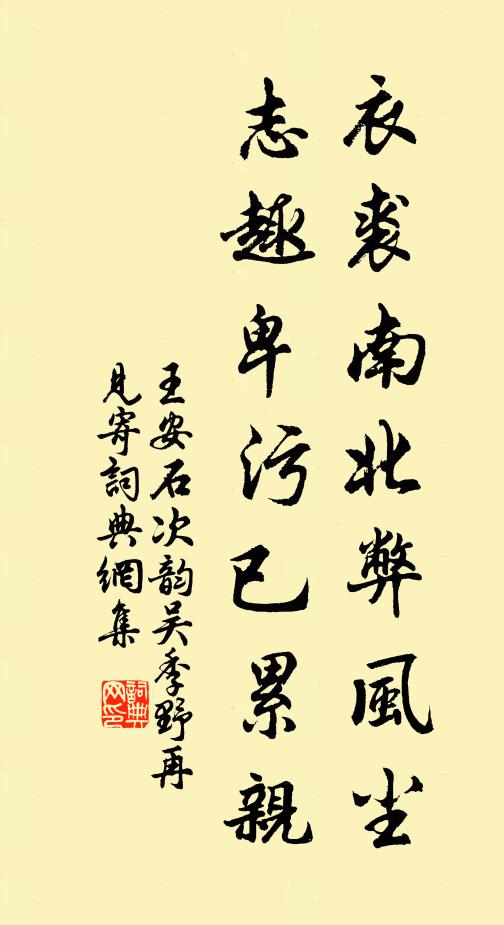 衣裘南北弊風尘
志趣卑污已累親
王安石次韵吴季野再
見寄詞典網集
詞典
网印